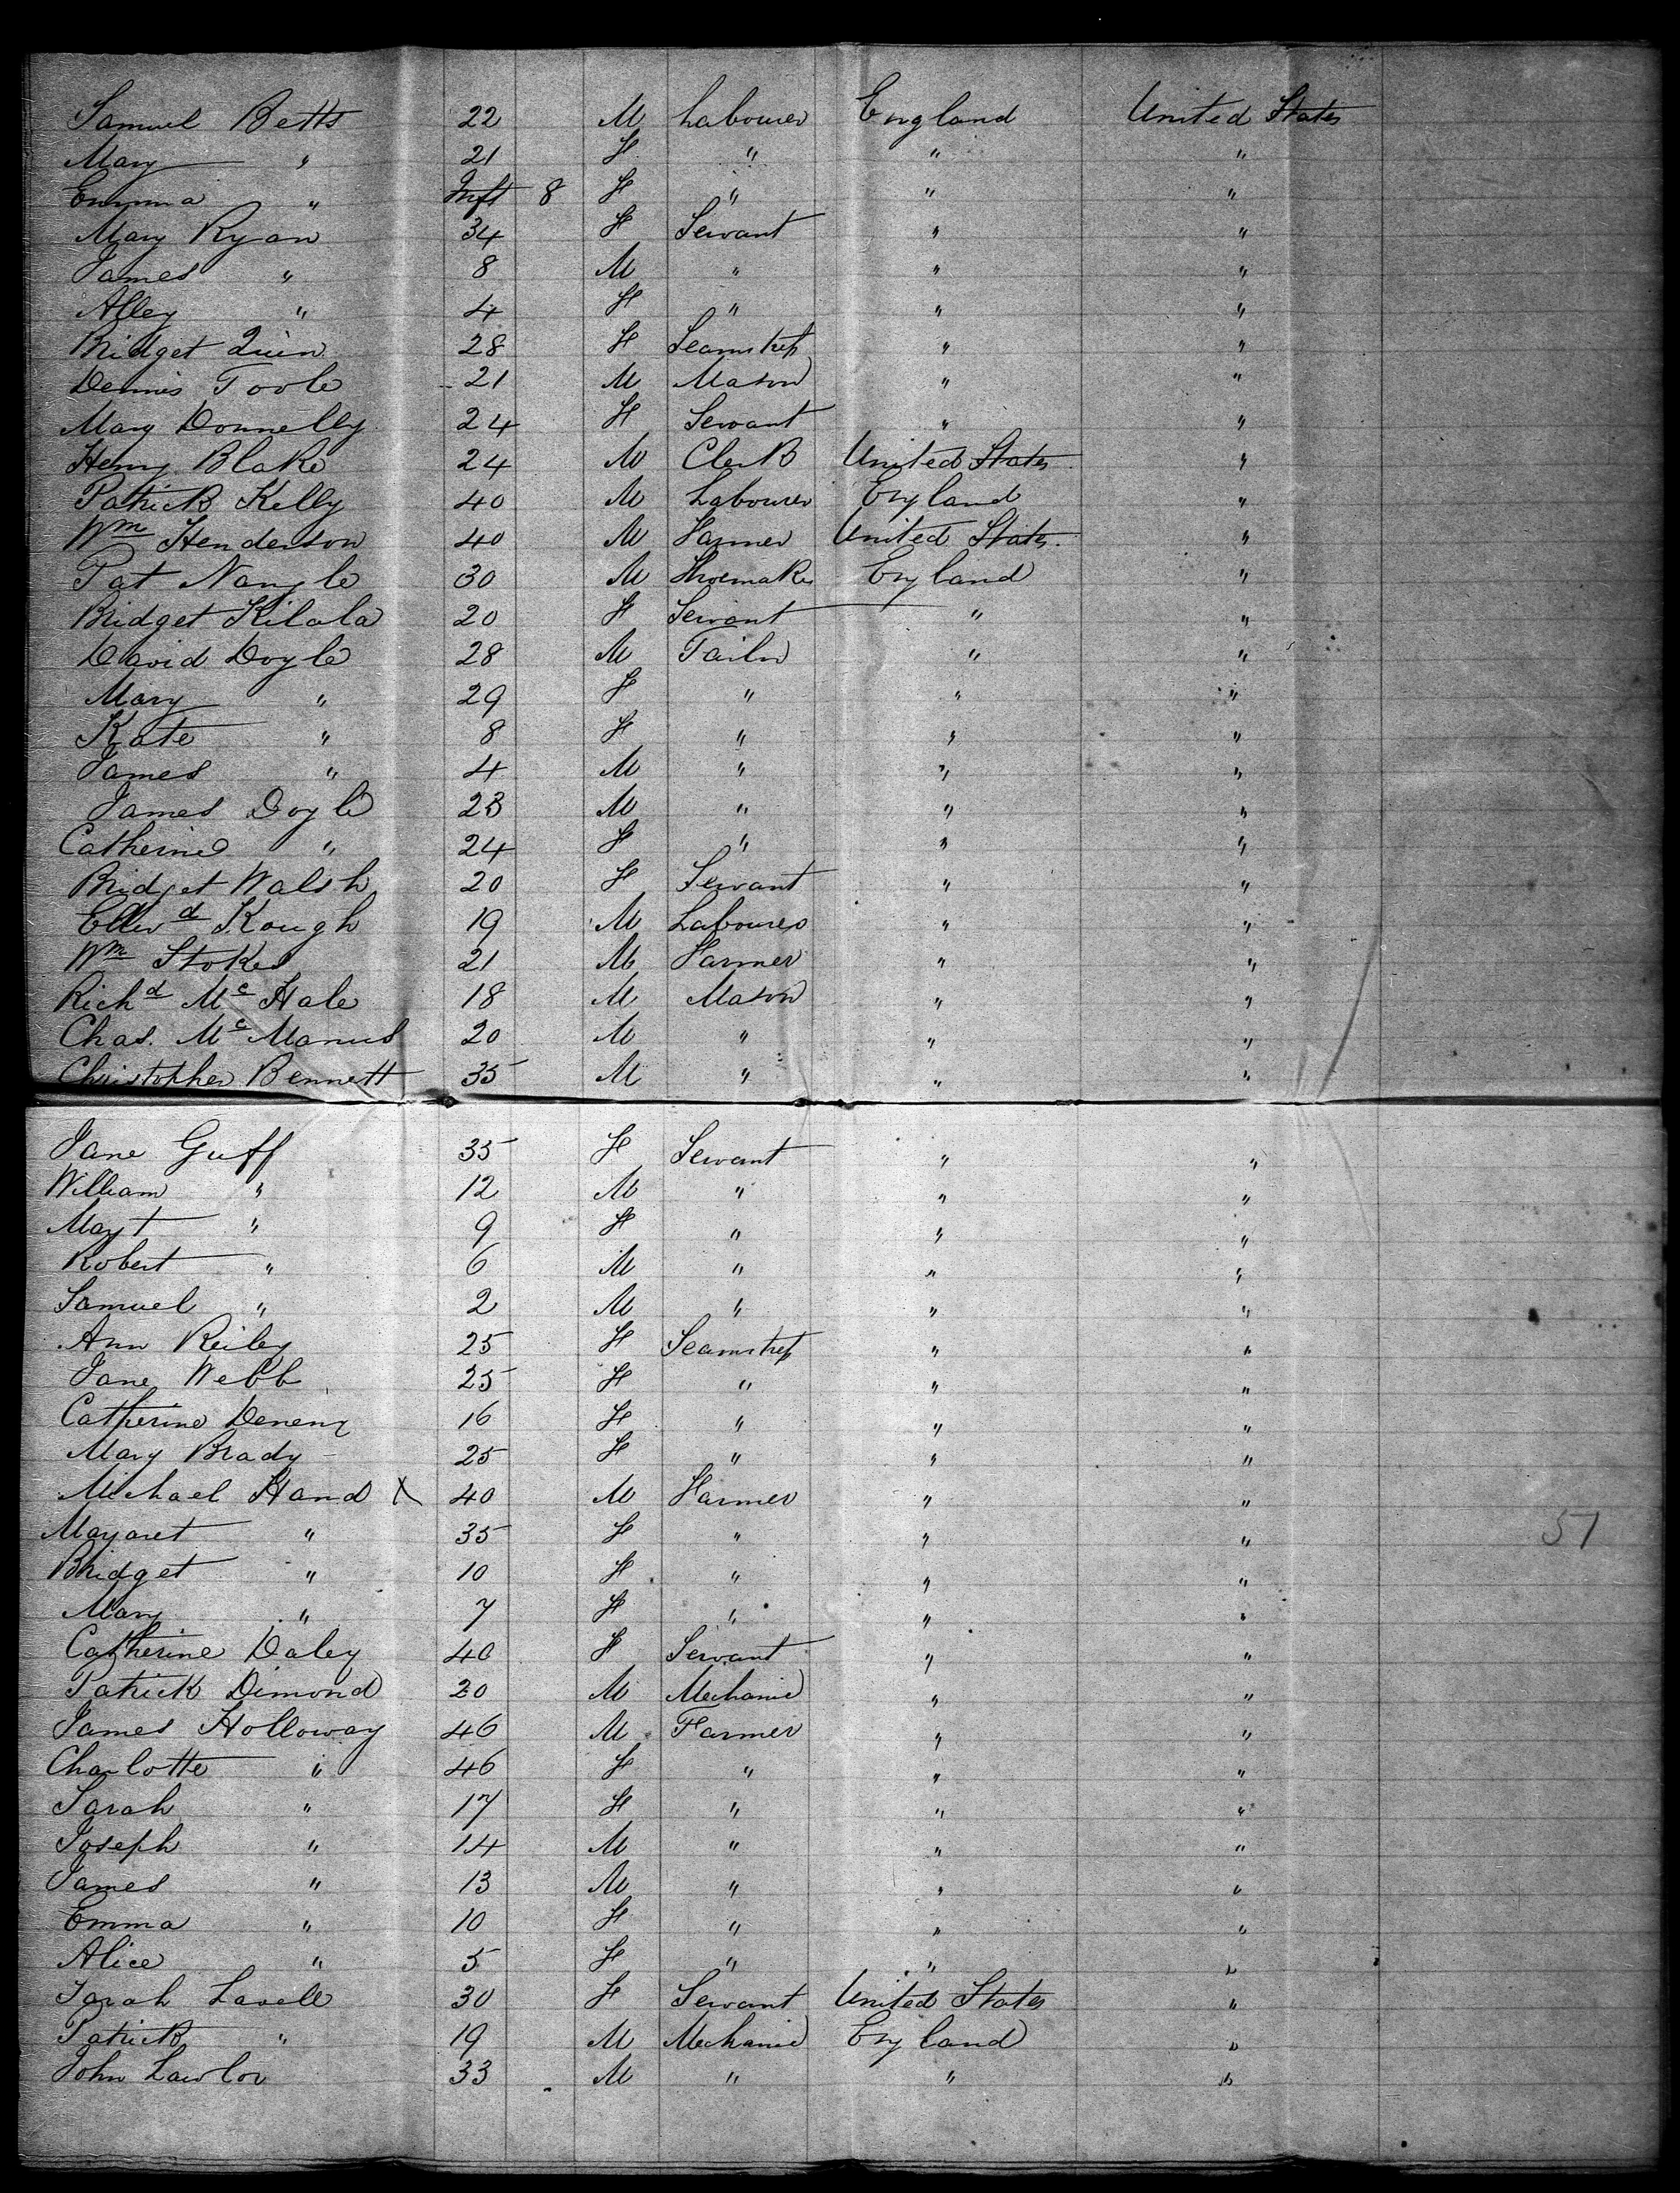 Samuel Betts 22 M Labourer England United States
Mary " 21 F " " "
Emma " Inft 8 F " " "
Mary Ryan 34 F Servant " "
James " 8 M " " "
Alley " 4 F " " "
Bridget Quin 28 F Seamstress " "
Dennis Toole 21 M Mason " "
Mary Donnelly 24 F Servant " "
Henry Blake 24 M Clerk United States "
Patrick Kelly 40 M Labourer England "
Wm Henderson 40 M Farmer United States "
Pat Nangle 30 M Shoemaker England "
Bridget Kilala 20 F Servant " "
David Doyle 28 M Tailor " "
Mary " 29 F " " "
Kate " 8 F " " "
James " 4 M " " "
James Doyle 23 M " " "
Catherine " 24 F " " "
Bridget Walsh 20 F Servant " "
Edwd Kough 19 M Labourer " "
Wm Stokes 21 M Farmer " "
Richd McHale 18 M Mason " "
Chas. McManus 20 M " " "
Christopher Bennett 35 M " " "
Jane Guff 35 F Servant " "
William " 12 M " " "
Magt " 9 F " " "
Robert " 6 M " " "
Samuel " 2 M " " "
Ann Reiley 25 F Seamstress " "
Jane Webb 25 F " " "
Catherine 16 F " " "
Mary Brady 25 F " " "
Michael Hand X 40 M Farmer " "
Margaret " 35 F " " "
Bridget " 10 F " " "
51
Mary " 7 F " " "
Catherine Daley 40 F Servant " "
Patrick Dimond 20 M Mechanic " "
James Holloway 46 M Farmer " "
Charlotte " 46 F " " "
Sarah " 17 F " " "
Joseph " 14 M " " "
James " 13 M " " "
Emma " 10 F " " "
Alice " 5 F " " "
Sarah Lavell 30 F Servant United States "
Patrick " 19 M Mechanic England "
John Lawlor 33 M " " "